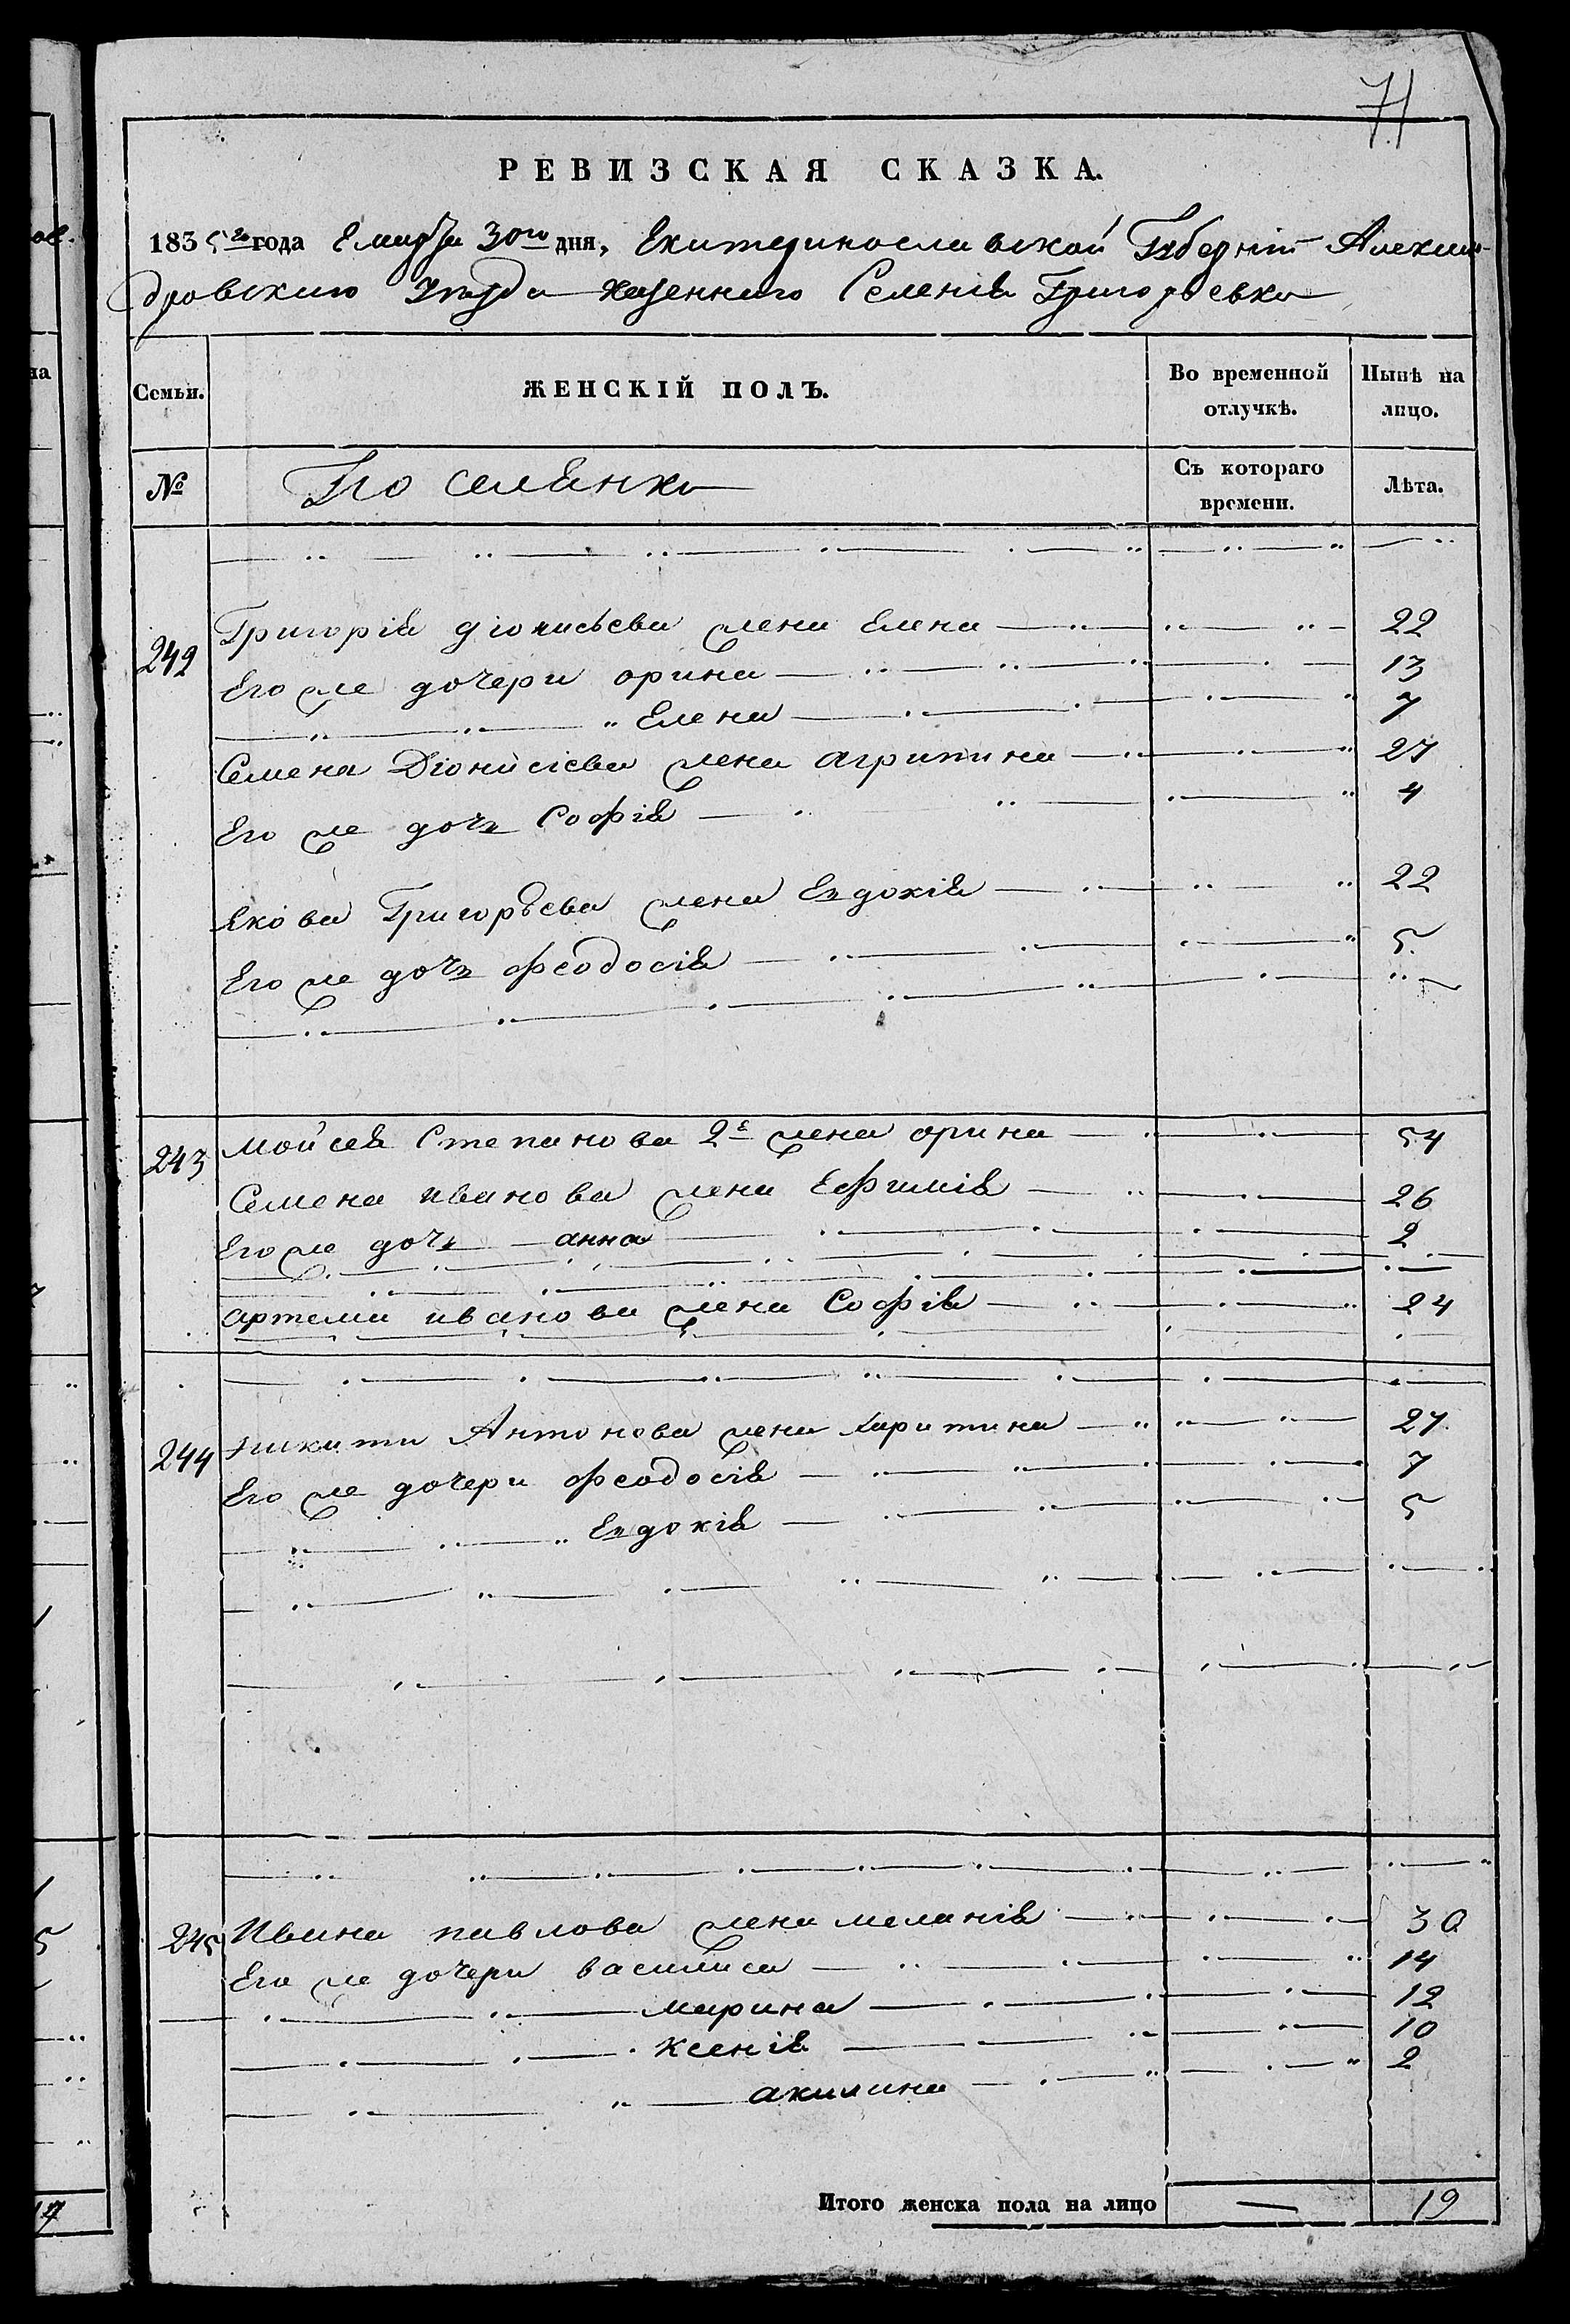 71
РЕВИЗСКАЯ СКАЗКА.
1835го года Марта 30го дня, Екатеринославской Губерніи Алексан-
дровскаго Уѣзда Казеннаго Селенія Григорьевки
Семьи. ЖЕНСКІЙ ПОЛЪ. Во временной отлучкѣ. Нынѣ на лицо.
№ Поселянки Съ котораго времени. Лѣта.
242 Григорія Діонисьева жена Елена 22
Его же дочери Орина 13
Елена 7
Семена Діонисіева жена Агрипина 27
Его же дочь Софія 4
Якова Григорьева жена Евдокія 22
Его же дочь Феодосія 5
243 Мойсея Степанова 2я жена Орина 54
Семена Иванова жена Ефимія 26
Его же дочь Анна 2
Артема Иванова жена Софія 24
244 Никити Антонова жена Харитина 27
Его же дочери Феодосія 7
Евдокія 5
245 Ивана Павлова жена Меланія 30
Его же дочери Василиса 14
Марина 12
Ксенія 10
Акилина 2
Итого женска пола на лицо — 19